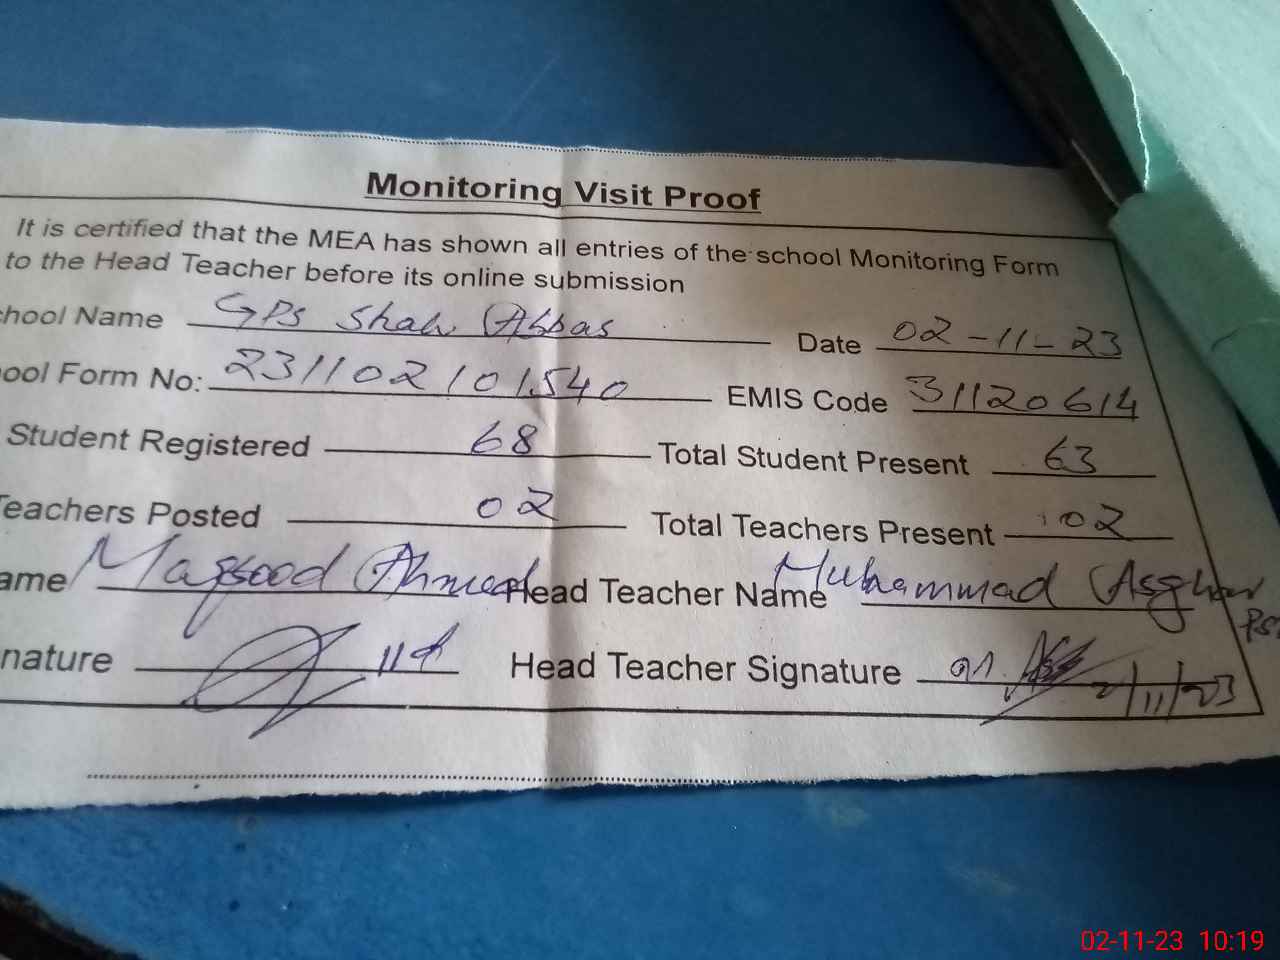 Monitoring Visit Proof
It is certified that the MEA has shown all entries of the school Monitoring Form
to the Head Teacher before its online submission
hool Name GPS Shah Abbas Date 02-11-23
ool Form No: 231102101540 EMIS Code 31120614
Student Registered 68 Total Student Present 63
Teachers Posted 02 Total Teachers Present 02
ame Maqsood Ahmed Head Teacher Name Muhammad Asghar
nature Head Teacher Signature 2/11/23
02-11-23 10:19